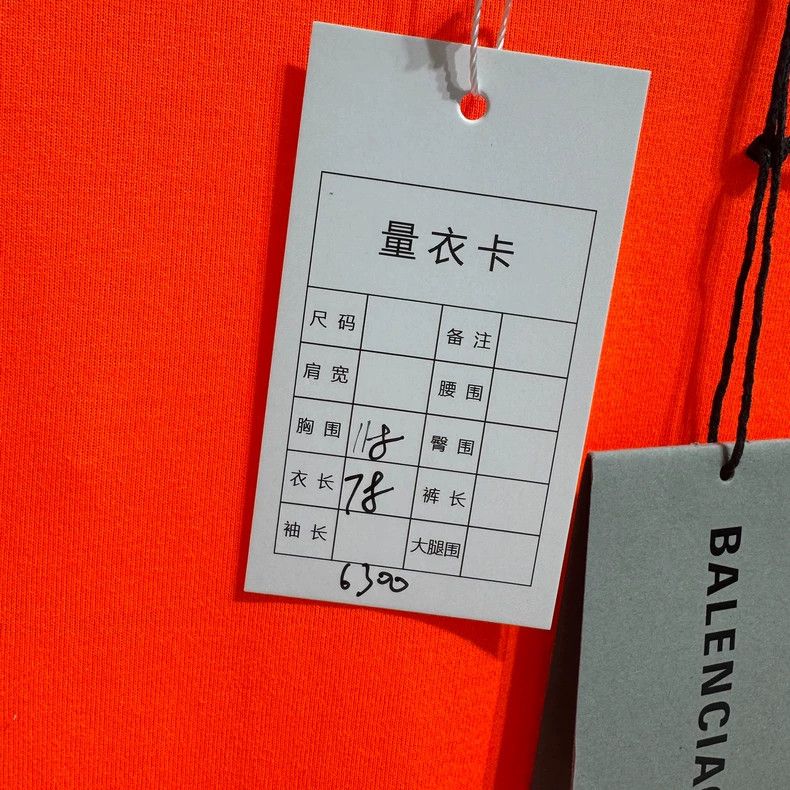 量衣卡
尺码 备注
肩宽 腰围
胸围 118 臀围
衣长 78 裤长
袖长 大腿围
6300
BALENCIAG